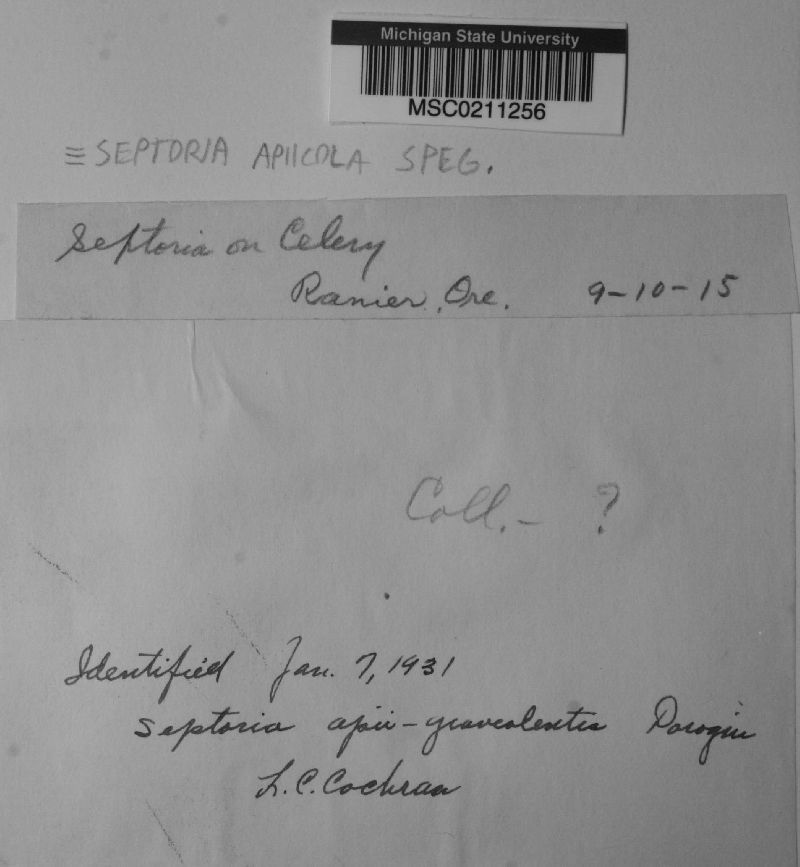 Michigan State University
MSC0211256
≡ SEPTORIA APIICOLA SPEG.
Septoria on Celery
Ranier, Ore. 9-10-15
Coll. - ?
Identified Jan. 7, 1931
Septoria apii-graveolentis Dorogin
L.C. Cochran